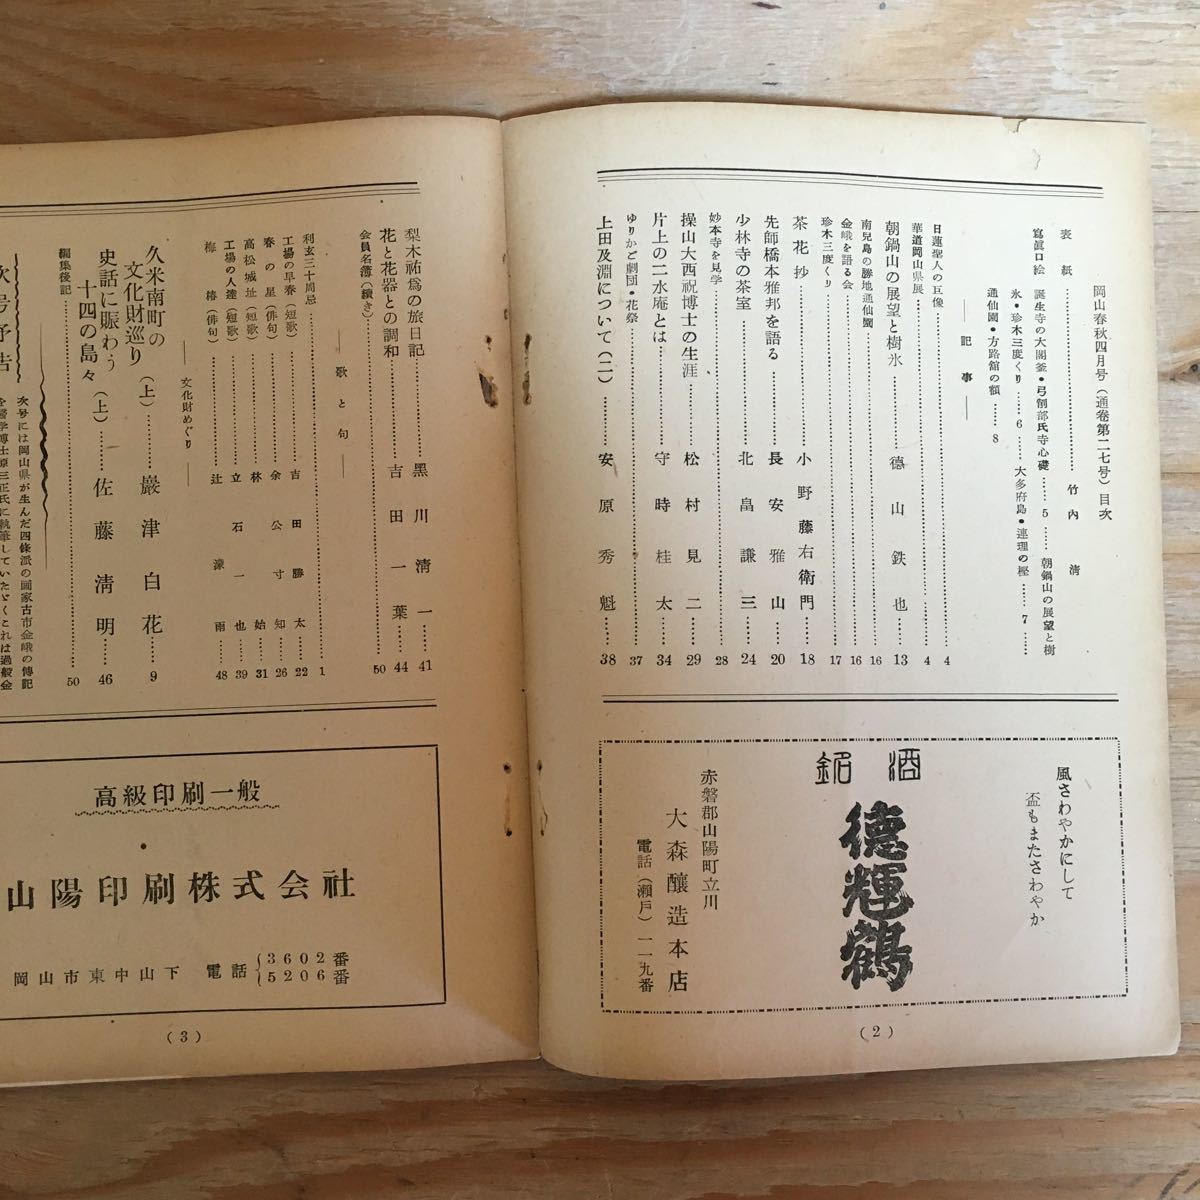 岡山春秋四月号（通巻第二七号）目次
表紙………竹内清
寫眞口絵　誕生寺の大閣釜・弓削部氏寺心礎……5……朝鍋山の展望と樹
氷・珍木三度くり……6……大多府島・連理の樫……7……
通仙園・方路舘の額……8
――記事――
日蓮聖人の巨像………4
華道岡山県展………4
朝鍋山の展望と樹氷………德山鉄也……13
南兒島の勝地通仙園………16
金峨を語る会………16
珍木三度くり………17
茶花抄………小野藤右衛門……18
先師橋本雅邦を語る………長安雅山……20
少林寺の茶室………北畠謙三……24
妙本寺を見学………28
操山大西祝博士の生涯………松村見二……29
片上の二水庵とは………守時桂太……34
ゆりかご劇団・花祭………37
上田及淵について（二）………安原秀魁……38
酒銘
風さわやかにして
盃もまたさわやか
德輝鶴
赤磐郡山陽町立川
大森釀造本店
電話（瀬戸）一一九番
（2）
梨木祐爲の旅日記………黑川淸一……41
花と花器との調和………吉田一葉……44
会員名簿（續き）………50
――歌と句――
利玄三十周忌………1
工場の早春（短歌）………吉田勝太……22
春の星（俳句）………余公寸知……26
高松城址（短歌）………林始……31
工場の人達（短歌）………立石一也……39
梅椿（俳句）………辻濛雨……48
――文化財めぐり――
久米南町の
文化財巡り（上）………巖津白花……9
史話に賑わう
十四の島々（上）………佐藤淸明……46
編集後記………50
次号予告
次号には岡山県が生んだ四條派の画家古市金峨の傳記
を醫学博士原三正氏に執筆していたゞくこれは過般金
高級印刷一般
山陽印刷株式会社
岡山市東中山下　電話 3602番
5206番
（3）